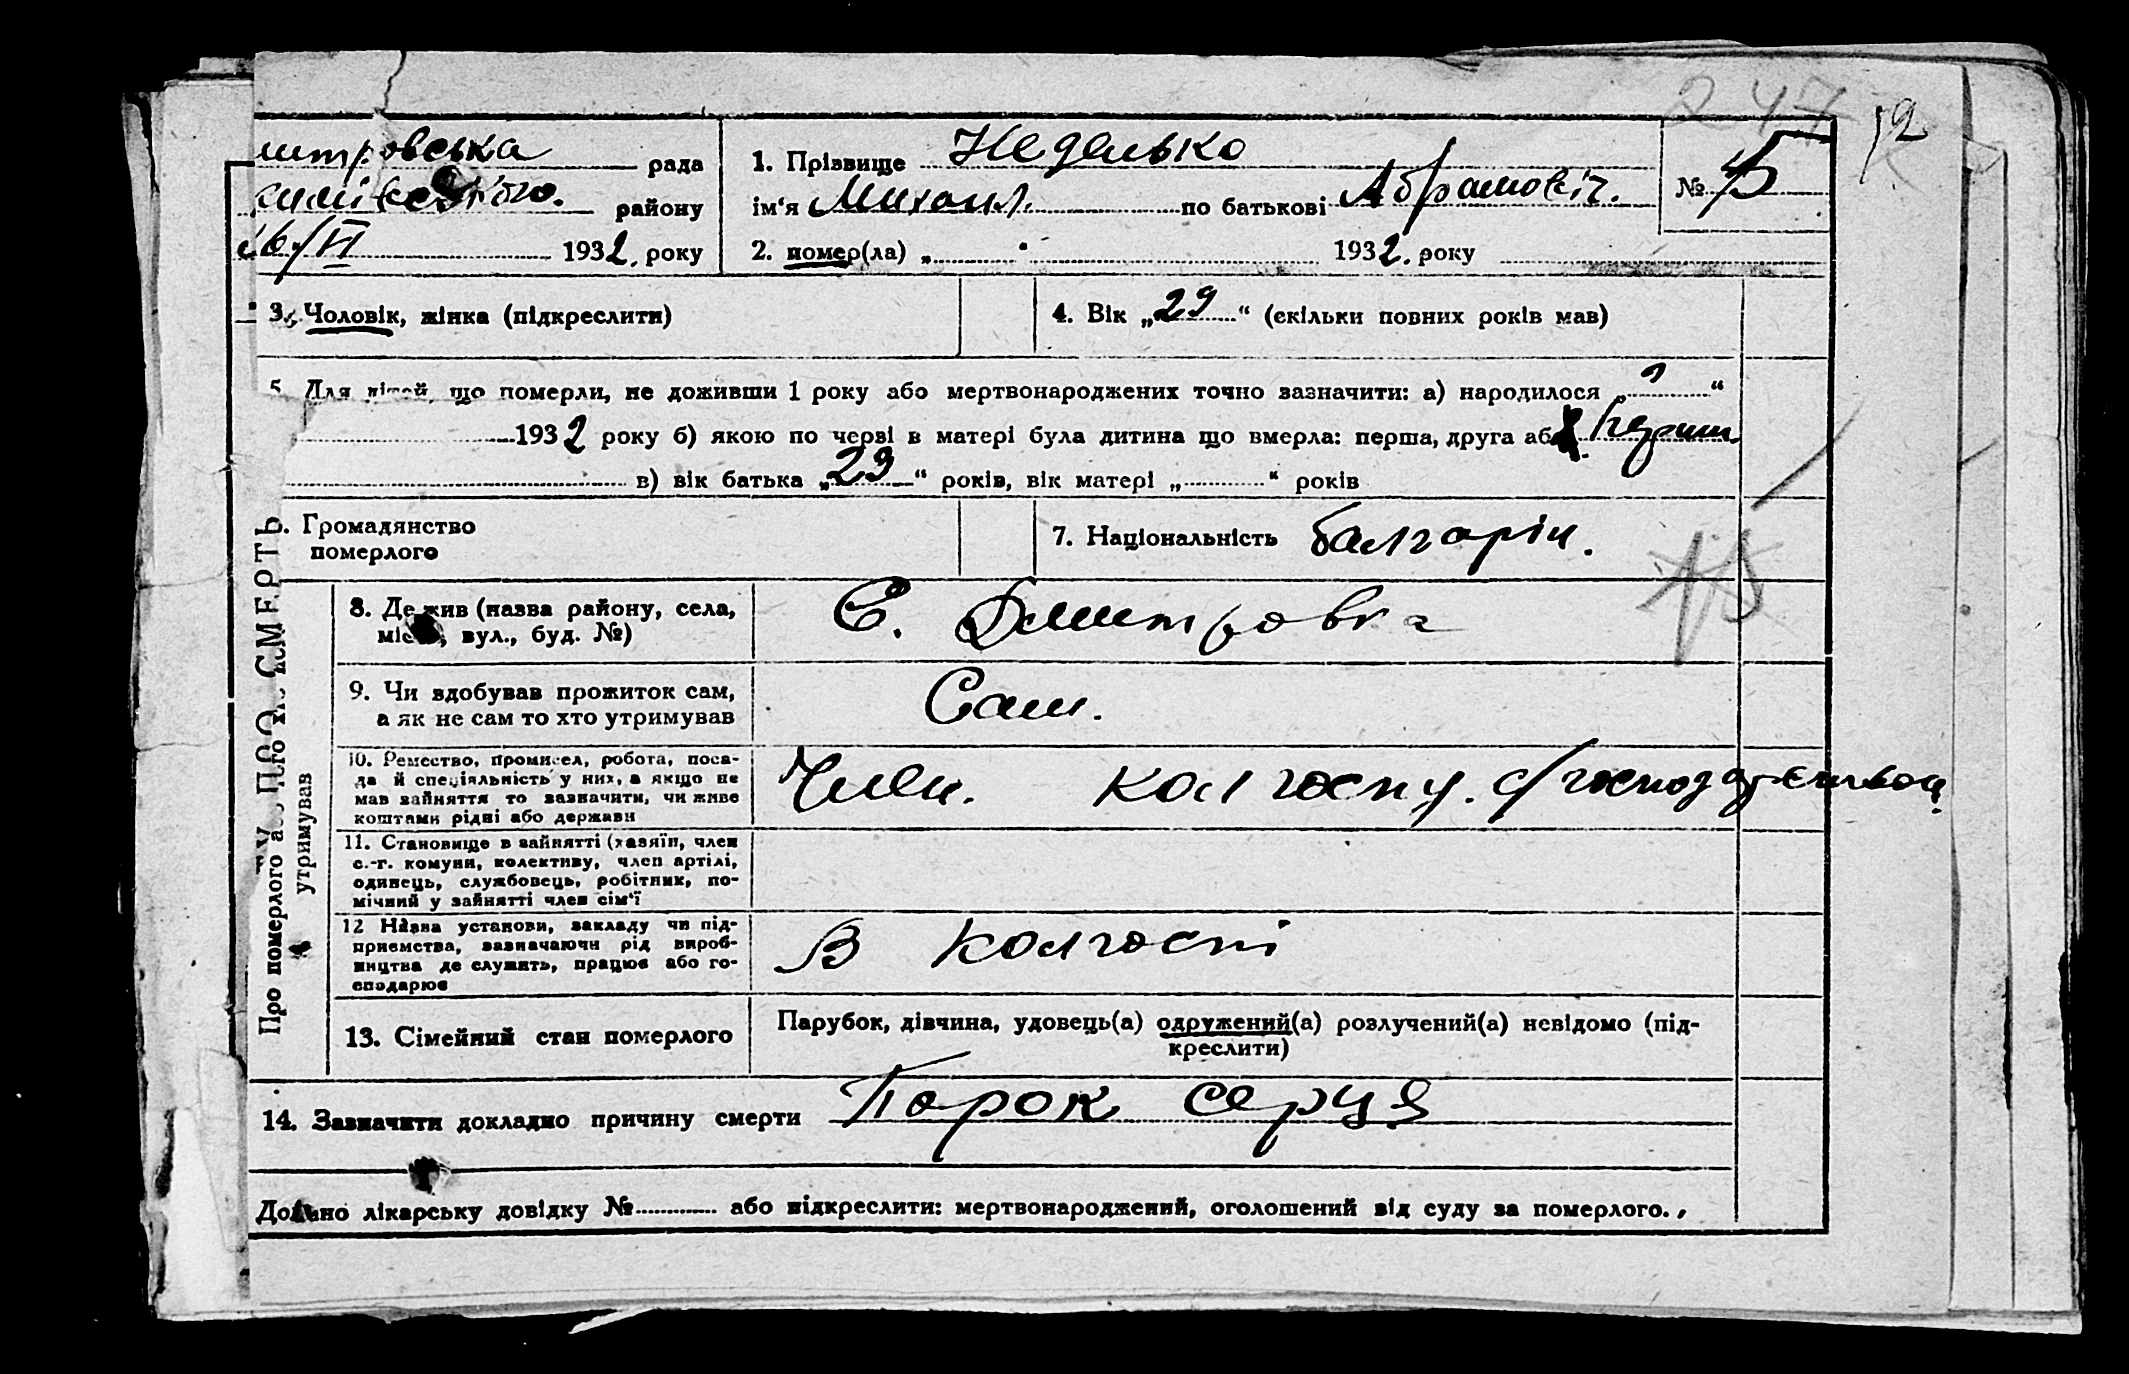 247 12
митровська рада
району
16/VI 1932. року
1. Прізвище Неделько
ім‘я Михаил. по батькові Абрамовіч.
№ 15
2. помер(ла) „ “ 1932. року
3. Чоловік, жінка (підкреслити)
4. Вік „29“ (скільки повних років мав)
5. Для дітей, що померли, не доживши 1 року або мертвонароджених точно зазначити: а) народилося „ “
1932 року б) якою по черві в матері була дитина що вмерла: перша, друга або
в) вік батька „29“ років, вік матері „ “ років
6. Громадянство
померлого
7. Національність болгарін.
СМЕРТЬ
Про померлого або про
утримував
8. Де жив (назва району, села,
міста, вул., буд. №)
С. Дмитровка
9. Чи вдобував прожиток сам,
а як не сам то хто утримував
Сам.
10. Ремество, промисел, робота, поса-
да й спеціяльність у них, а якщо не
мав зайняття то зазначити, чи живе
коштами рідні або держави
Член. колгоспу. с/господарством
11. Становище в зайнятті (хазяїн, член
с.-г. комуни, колективу, член артілі,
одинець, службовець, робітник, по-
мічний у зайнятті член сім‘ї
12 Назва установи, закладу чи під-
приємства, зазначаючи рід вироб-
ництва де служить, працює або го-
сподарює
В колгоспі
13. Сімейний стан померлого
Парубок, дівчина, удовець(а) одружений(а) розлучений(а) невідомо (під-
креслити)
14. Зазначити докладно причину смерти Порок серця
Додано лікарську довідку № або підкреслити: мертвонароджений, оголошений від суду за померлого.